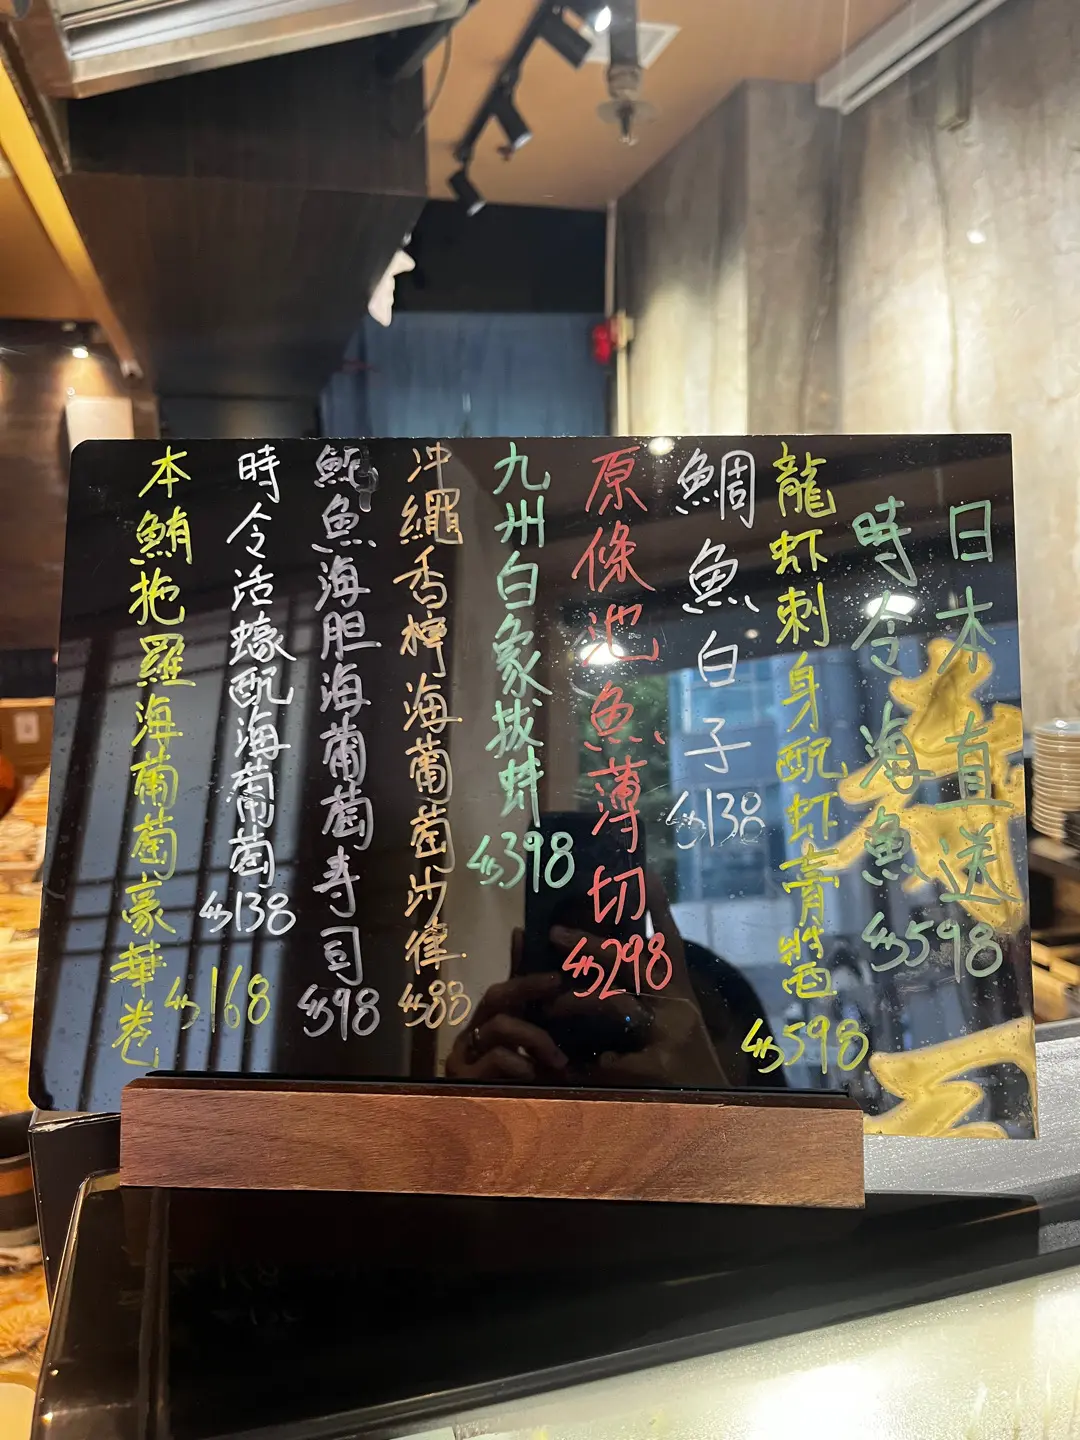 日本直送
時令海魚
$598
龍虾刺身配虾膏醬
$598
鯛魚白子
$138
原條池魚薄切
$298
九州白象拔蚌
$398
沖繩香檸海葡萄沙律
$88
魚海胆海葡萄寿司
$98
時令活蠔配海葡萄
$138
本鮪拖羅海葡萄豪華卷
$168